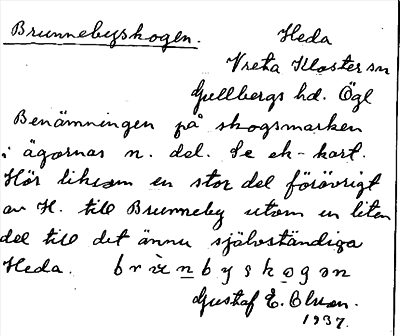 Brunnebyskogen.
Heda
Vreta Kloster sn
Gullbergs hd. Ögl
Benämningen på skogsmarken
i ägornas n. del. Se ek-kart.
Hör liksom en stor del förövrigt
av H. till Brunneby utom en liten
del till det ännu självständiga
Heda.
Gustaf E. Olsson.
1937.